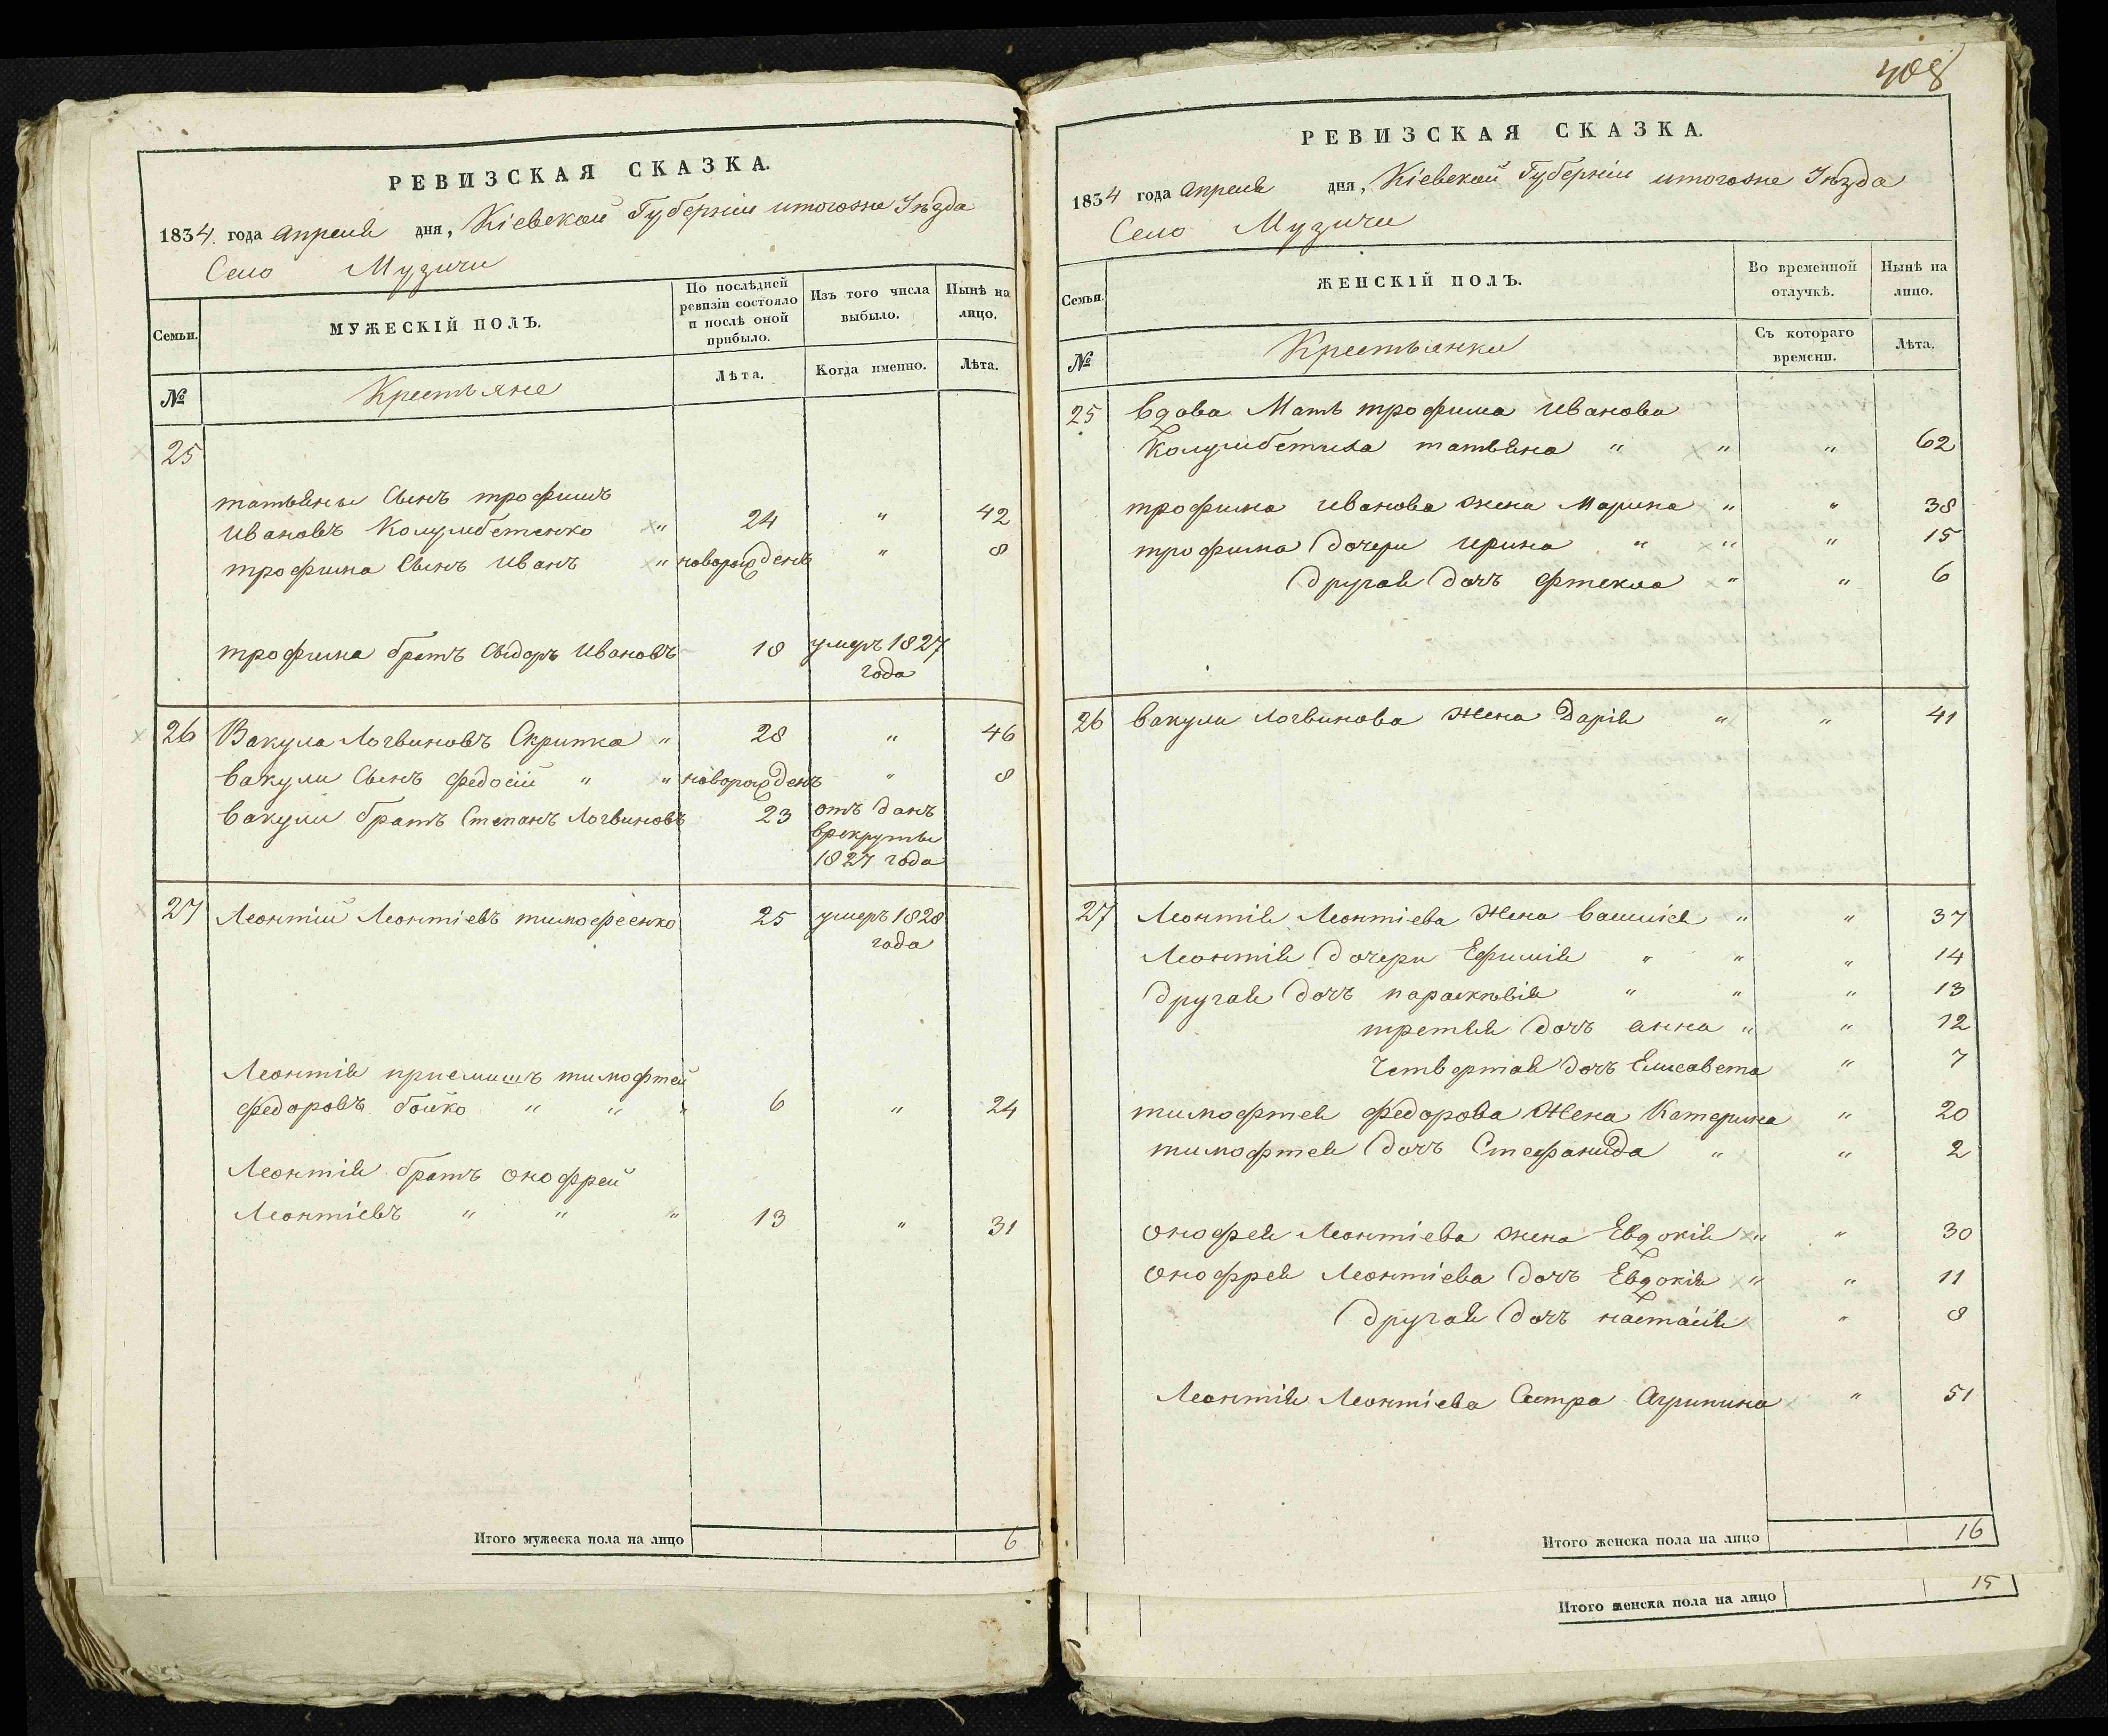 РЕВИЗСКАЯ СКАЗКА.
1834. года апреля дня, Кіевской Губерніи итогоже Уѣзда
Село Музичи
Семьи.
МУЖЕСКІЙ ПОЛЪ.
По послѣдней ревизіи состояло и послѣ оной прибыло.
Изъ того числа выбыло.
Нынѣ на лицо.
№
Крестьяне
Лѣта.
Когда именно.
Лѣта.
25
татьяны Сынъ трофимъ
Ивановъ Колумбетенко " 24 " 42
трофима Сынъ Иванъ " новорожденъ " 8
трофима братъ Сыдоръ Ивановъ 18 умеръ 1827
года
26 Вакула Логвиновъ Скрипка " 28 " 46
Вакули Сынъ Федосій " " новорожденъ " 8
Вакули братъ Степанъ Логвиновъ 23 отъ данъ
врекруты
1827 года
27 Леонтій Леонтіевъ тимофеенко 25 умеръ 1828
года
Леонтія приемишъ тимофтей
Федоровъ бойко " " " 6 " 24
Леонтія братъ Онофрей
Леонтіевъ " " " 13 " 31
Итого мужеска пола на лицо 6
408
РЕВИЗСКАЯ СКАЗКА.
1834 года апреля дня, Кіевской Губерніи итогоже Уѣзда
Село Музичи
Семьи.
ЖЕНСКІЙ ПОЛЪ.
Во временной отлучкѣ.
Нынѣ на лицо.
№
Крестьянки
Съ котораго времени.
Лѣта.
25 Вдова Мать трофима Иванова
Колумбетиха татьяна " " " 62
трофима Иванова жена Марина " " 38
трофима дочери Ирина " " " 15
другая дочь Фтекла " " 6
26 Вакули Логвинова жена Дарія " " 41
27 Леонтія Леонтіева жена Василіса " " 37
Леонтія дочери Ефимія " " " 14
другая дочъ параскѣвія " " " 13
третяя дочъ анна " " 12
Четвертая дочъ Елисавета " 7
тимофтея Федорова жена Катерина " 20
тимофтея дочъ Стефанида " " 2
Онофрея Леонтіева жена Евдокія " " 30
Онофрея Леонтіева дочъ Евдокія " " 11
другая дочъ настасія " 8
Леонтія Леонтіева Сестра Агрипина " 51
Итого женска пола на лицо 16
Итого женска пола на лицо 15